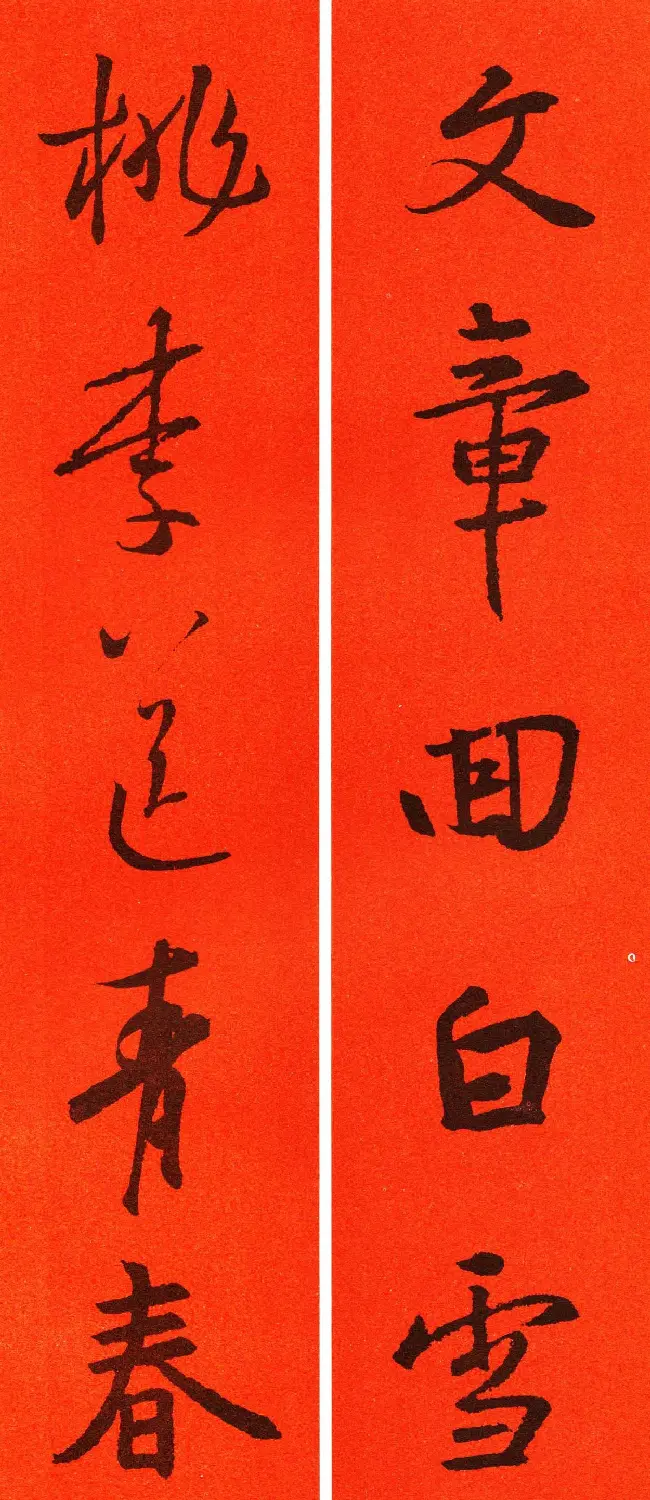 文章回白雪
桃李青春